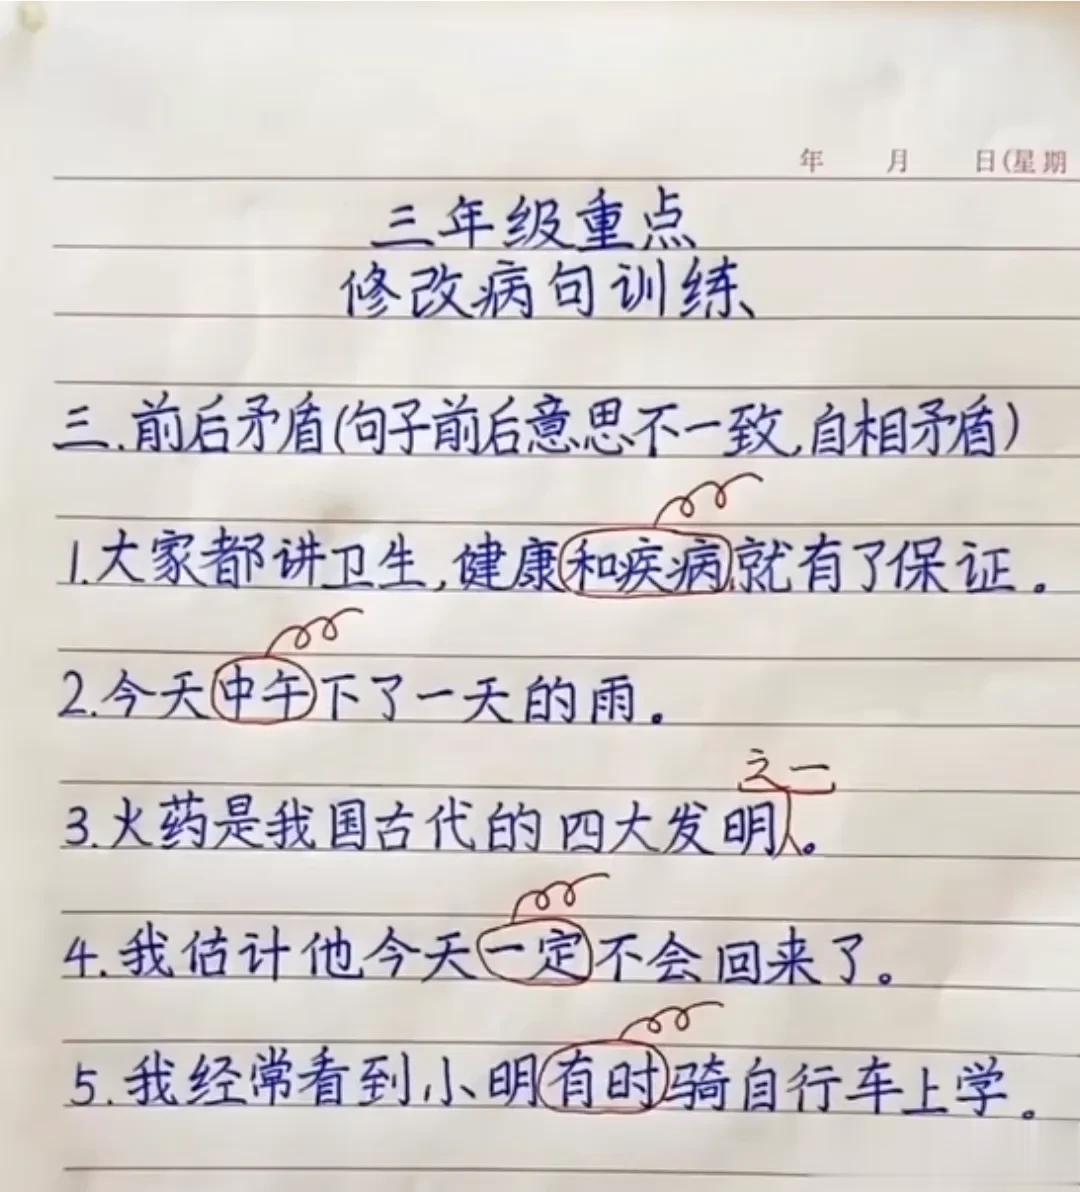 年 月 日(星期
三年级重点
修改病句训练
三.前后矛盾(句子前后意思不一致,自相矛盾)
1.大家都讲卫生,健康和疾病就有了保证。
2.今天中午下了一天的雨。
之一
3.火药是我国古代的四大发明。
4.我估计他今天一定不会回来了。
5.我经常看到小明有时骑自行车上学。